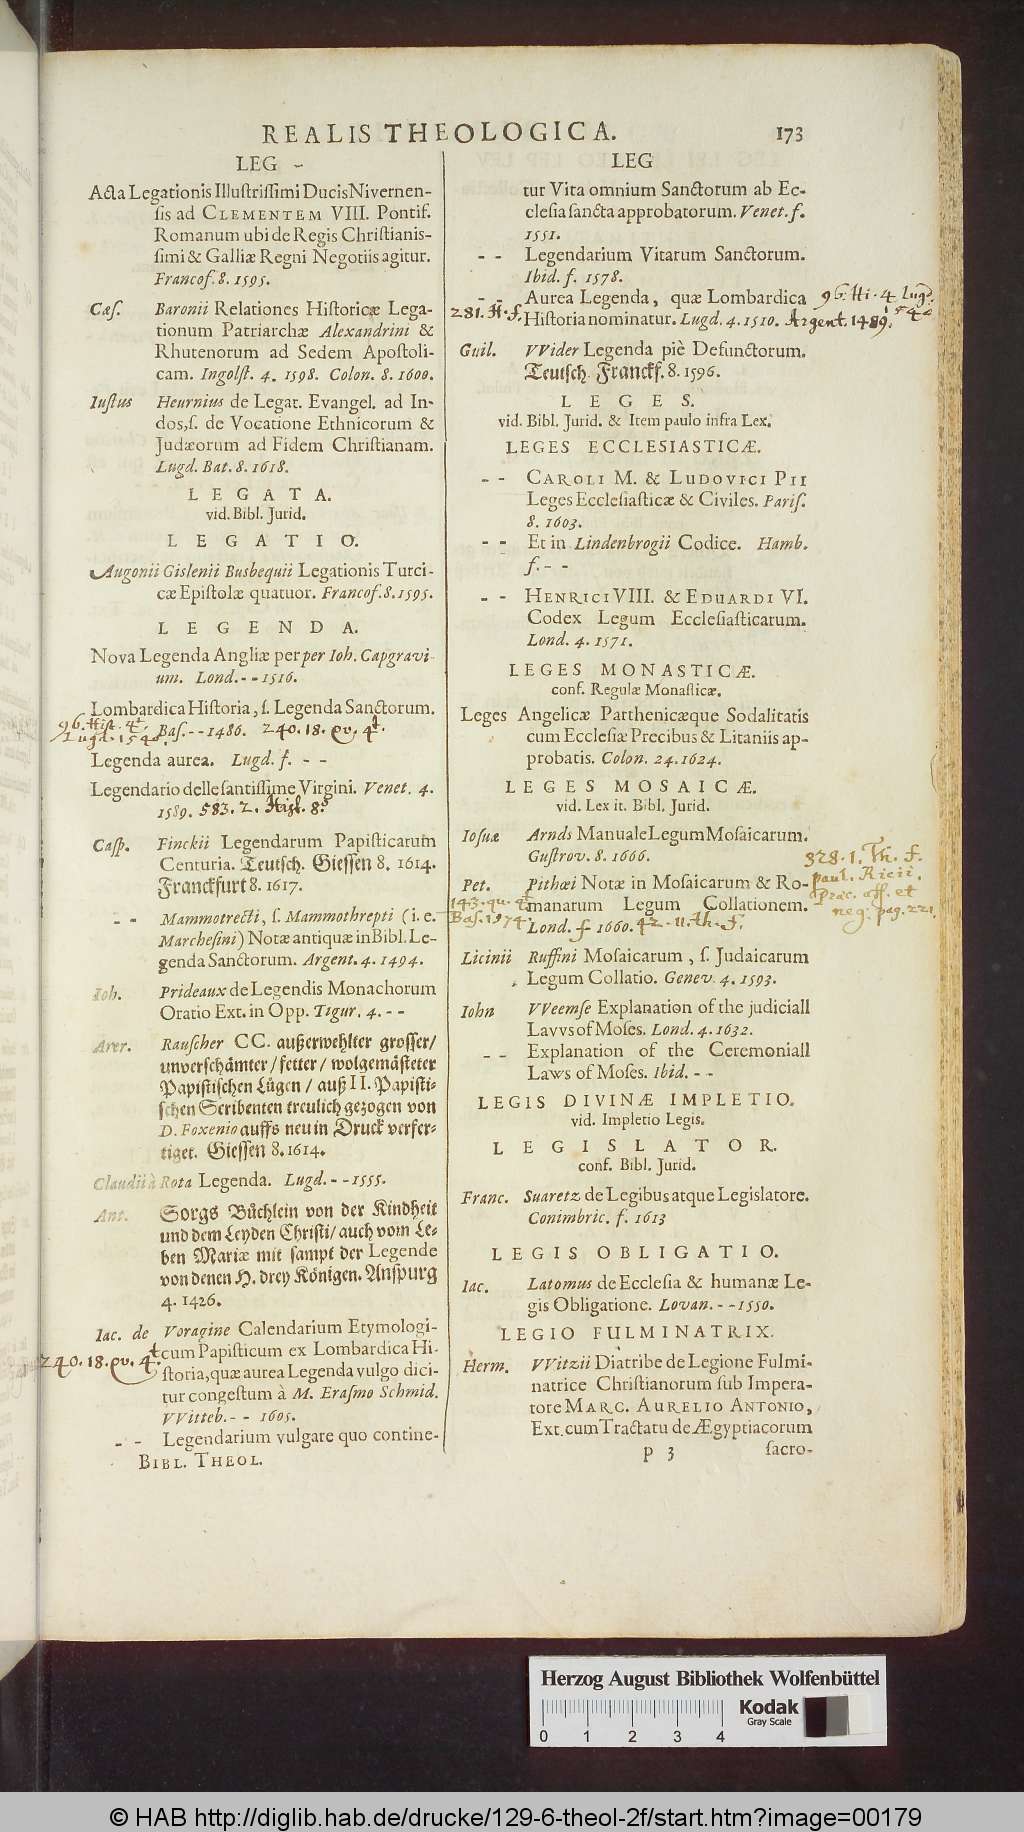 REALIS THEOLOGICA. 173
LEG -
Acta Legationis Illustrissimi Ducis Nivernen-
sis ad CLEMENTEM VIII. Pontif.
Romanum ubi de Regis Christianis-
simi & Galliæ Regni Negotiis agitur.
Francof. 8. 1595.
Cæs. Baronii Relationes Historicæ Lega-
tionum Patriarchæ Alexandrini &
Rhutenorum ad Sedem Apostoli-
cam. Ingolst. 4. 1598. Colon. 8. 1600.
Iustus Heurnius de Legat. Evangel. ad In-
dos, s. de Vocatione Ethnicorum &
Judæorum ad Fidem Christianam.
Lugd. Bat. 8. 1618.
LEGATA.
vid. Bibl. Jurid.
LEGATIO.
Augonii Gislenii Busbequii Legationis Turci-
cæ Epistolæ quatuor. Francof. 8. 1595.
LEGENDA.
Nova Legenda Angliæ per per Ioh. Capgravi-
um. Lond. - - 1516.
Lombardica Historia, s. Legenda Sanctorum.
96. Hist. 4t. Bas. - - 1486. 240. 18. qv. 4t.
Lugd. 1540.
Legenda aurea. Lugd. f. - -
Legendario delle santissime Virgini. Venet. 4.
1589. 583. 2. Hist. 8º
Casp. Finckii Legendarum Papisticarum
Centuria. Teutsch. Giessen 8. 1614.
Franckfurt 8. 1617.
- - Mammotrecti, s. Mammothrepti (i. e.
Marchesini) Notæ antiquæ in Bibl. Le-
genda Sanctorum. Argent. 4. 1494.
Ioh. Prideaux de Legendis Monachorum
Oratio Ext. in Opp. Tigur. 4. - -
Arer. Rauscher CC. außerwehlter grosser/
unverschämter/ fetter/ wolgemästeter
Papistischen Lügen/ auß II. Papisti-
schen Scribenten treulich gezogen von
D. Foxenio auffs neu in Druck verfer-
tiget. Giessen 8. 1614.
Claudii à Rota Legenda. Lugd. - - 1555.
Ant. Sorgs Büchlein von der Kindheit
und dem Leyden Christi/ auch vom Le-
ben Mariæ mit sampt der Legende
von denen H. drey Königen. Auspurg
4. 1426.
Iac. de Voragine Calendarium Etymologi-
240. 18. qv. 4t cum Papisticum ex Lombardica Hi-
storia, quæ aurea Legenda vulgo dici-
tur congestum à M. Erasmo Schmid.
VVitteb. - - 1605.
- - Legendarium vulgare quo contine-
BIBL. THEOL.
LEG
tur Vita omnium Sanctorum ab Ec-
clesia sancta approbatorum. Venet. f.
1551.
- - Legendarium Vitarum Sanctorum.
Ibid. f. 1578.
- - Aurea Legenda, quæ Lombardica 96. Hi. 4 Lugd.
281. H. f. Historia nominatur. Lugd. 4. 1510. Argent. 1489.
Guil. VVider Legenda piè Defunctorum.
Teutsch. Franckf. 8. 1596.
LEGES.
vid. Bibl. Jurid. & Item paulo infra Lex.
LEGES ECCLESIASTICÆ.
- - CAROLI M. & LUDOVICI PII
Leges Ecclesiasticæ & Civiles. Paris.
8. 1603.
- - Et in Lindenbrogii Codice. Hamb.
f. - -
- - HENRICI VIII. & EDUARDI VI.
Codex Legum Ecclesiasticarum.
Lond. 4. 1571.
LEGES MONASTICÆ.
conf. Regulæ Monasticæ.
Leges Angelicæ Parthenicæque Sodalitatis
cum Ecclesiæ Precibus & Litaniis ap-
probatis. Colon. 24. 1624.
LEGES MOSAICÆ.
vid. Lex it. Bibl. Jurid.
Iosuæ Arnds Manuale Legum Mosaicarum.
Gustrov. 8. 1666.
328. 1. Th. f.
paul. Ricii.
prac. aff. et
neg. pag. 221.
Pet. Pithœi Notæ in Mosaicarum & Ro-
143. qu. 4t manarum Legum Collationem.
Bas. 1974. Lond. f 1660. 42. 11. th. f.
Licinii Ruffini Mosaicarum, s. Judaicarum
Legum Collatio. Genev. 4. 1593.
Iohn VVeemse Explanation of the judiciall
Lavvs of Moses. Lond. 4. 1632.
- - Explanation of the Ceremoniall
Laws of Moses. Ibid. - -
LEGIS DIVINÆ IMPLETIO.
vid. Impletio Legis.
LEGISLATOR.
conf. Bibl. Jurid.
Franc. Suaretz de Legibus atque Legislatore.
Conimbric. f. 1613
LEGIS OBLIGATIO.
Iac. Latomus de Ecclesia & humanæ Le-
gis Obligatione. Lovan. - - 1550.
LEGIO FULMINATRIX.
Herm. VVitzii Diatribe de Legione Fulmi-
natrice Christianorum sub Impera-
tore MARC. AURELIO ANTONIO,
Ext. cum Tractatu de Ægyptiacorum
p 3 sacro-
Herzog August Bibliothek Wolfenbüttel
0 1 2 3 4
Kodak
Gray Scale
© HAB http://diglib.hab.de/drucke/129-6-theol-2f/start.htm?image=00179